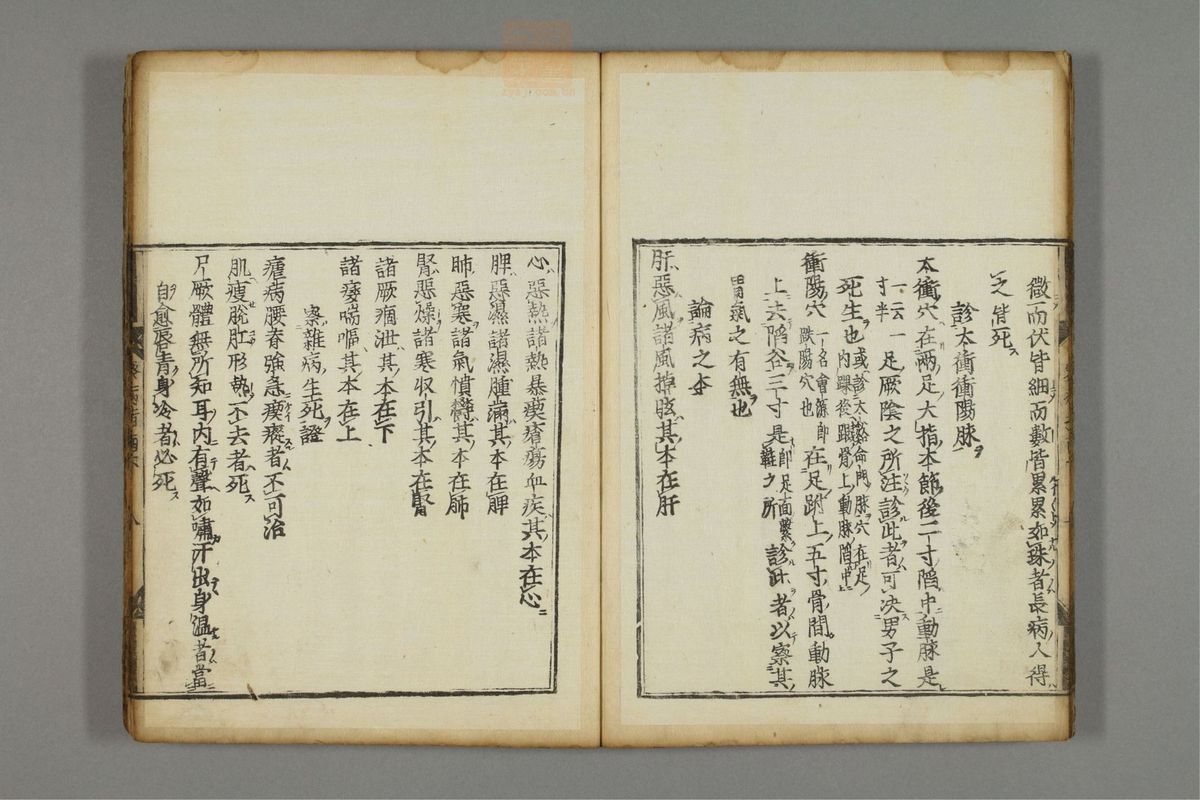 微而伏皆細而數皆累累如珠者長病人得
之皆死
診太衝衝陽脉
太衝穴在兩足大指本節後二寸陷中動脉是
一云一寸半 足厥陰之所注診此者可決男子之
死生也 或診太谿命門脉穴在足内踝後跟骨上動脉陷中
衝陽穴 一名會源即趺陽穴也 在足趺上五寸骨間動脉
上去陷谷三寸是 即足面繫鞋之所 診此者以察其
胃氣之有無也
論病之本
肝惡風諸風掉眩其本在肝
心惡熱諸熱暴瘈瘡瘍血疾其本在心
脾惡濕諸濕腫滿其本在脾
肺惡寒諸氣憤欝其本在肺
腎惡燥諸寒収引其本在腎
諸厥痼泄其本在下
諸痿喘嘔其本在上
察雜病生死證
瘧病腰脊強急瘈瘲者不可治
肌瘦脱肛形熱不去者死
尸厥體無所知耳内有聲如嘯汗出身温者當
自愈唇青身冷者必死
八
zysj.com.cn